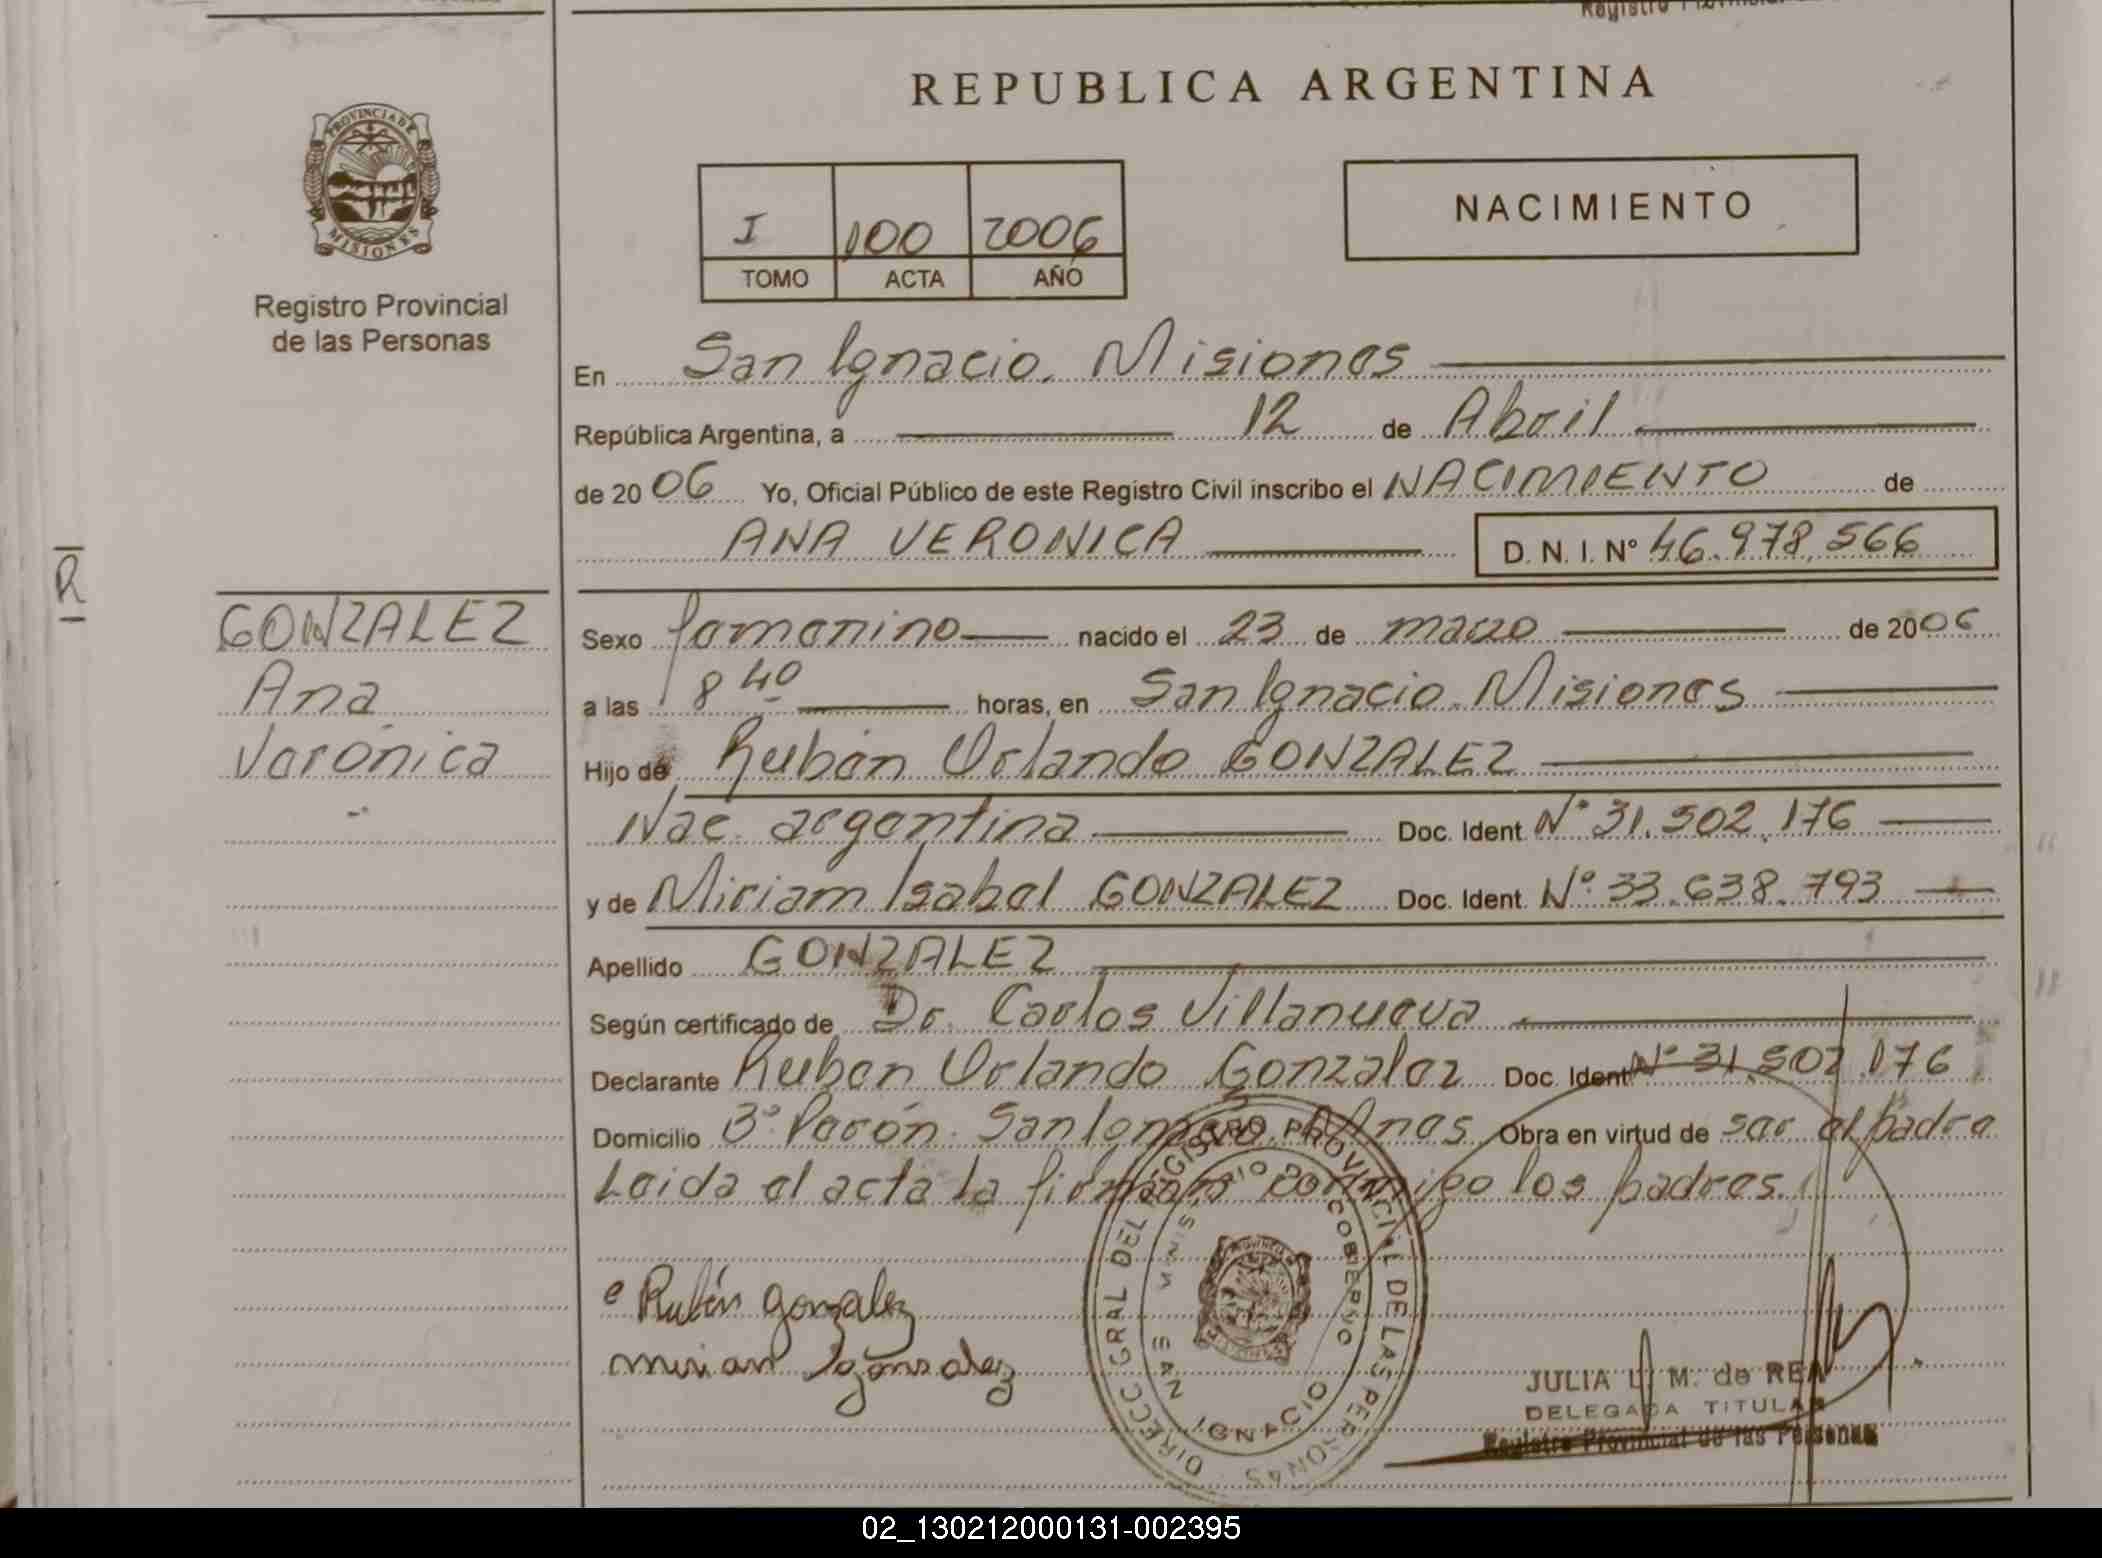 REPUBLICA ARGENTINA
PROVINCIA DE
MISIONES
Registro Provincial
de las Personas
I 100 2006
TOMO ACTA AÑO
NACIMIENTO
En San Ignacio. Misiones
República Argentina, a 12 de Abril
de 2006 Yo, Oficial Público de este Registro Civil inscribo el NACIMIENTO de
ANA VERONICA D. N. I. Nº 46.978.566
R
GONZALEZ
Ana
Verónica
Sexo femenino nacido el 23 de marzo de 2006
a las 8 40 horas, en San Ignacio. Misiones
Hijo de Rubén Orlando GONZALEZ
Nac. argentina Doc. Ident. Nº 31.502.176
y de Miriam Isabel GONZALEZ Doc. Ident. Nº 33.638.793
Apellido GONZALEZ
Según certificado de Dr. Carlos Villanueva
Declarante Ruben Orlando Gonzalez Doc. Ident Nº 31.502.176
Domicilio Bº Perón. San Ignacio Mnes. Obra en virtud de ser el padre
Leida el acta la firman conmigo los padres.
Rubén gonzalez
mirian I gonzalez
DIRECC GRAL DEL REGISTRO PROVINCIAL DE LAS PERSONAS
MINISTERIO DE GOBIERNO
SAN IGNACIO
JULIA L. M. de REA
DELEGADA TITULAR
Registro Provincial de las Personas
02_130212000131-002395